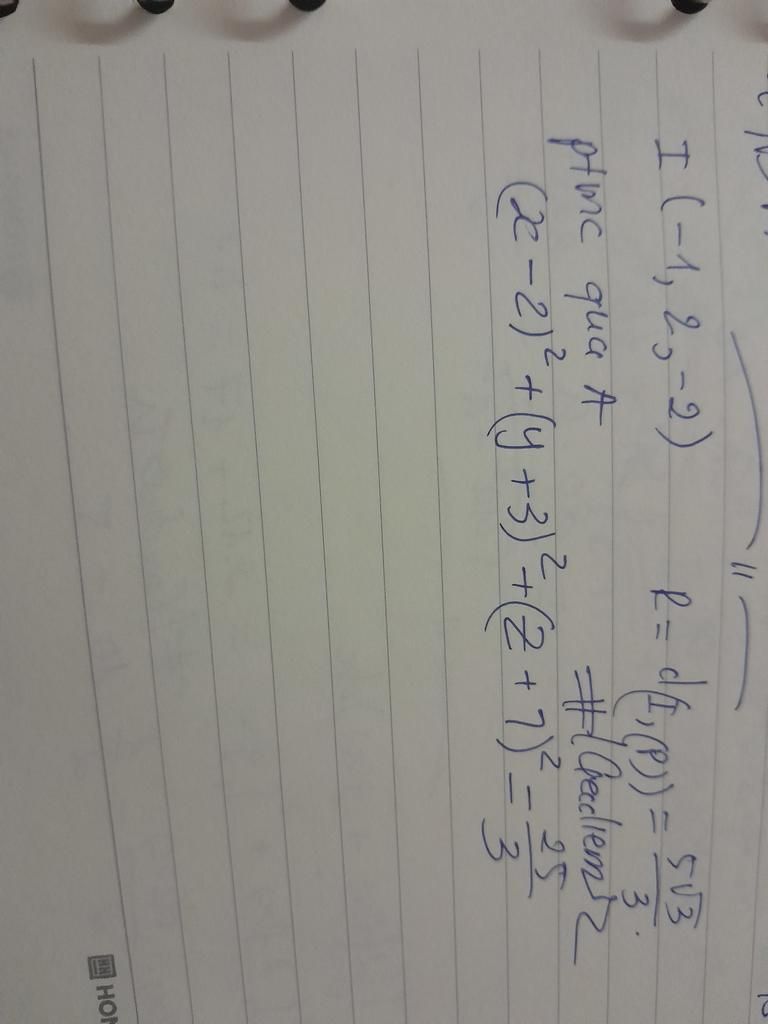 I (-1, 2, -2) R = d(I, (P)) = 5√3/3.
ptmc qua A
(x - 2)² + (y + 3)² + (z + 7)² = 25/3
HON